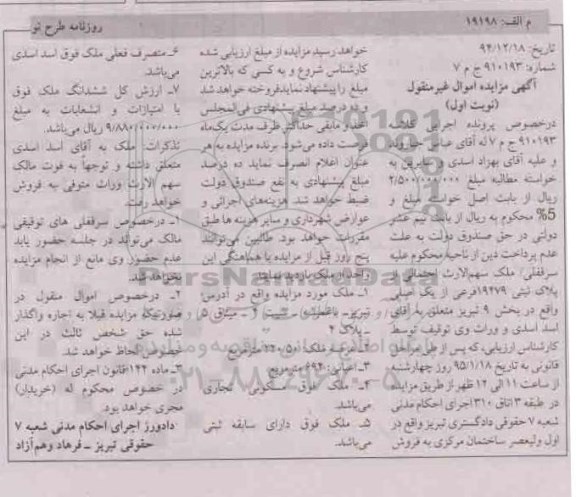 م الف: ۱۹۱۹۸
روزنامه طرح نو
تاریخ: ۹۴/۱۲/۱۸
شماره: ۹۱۰۱۹۳ ج م ۷
آگهی مزایده اموال غیرمنقول
(نوبت اول)
درخصوص پرونده اجرایی کلاسه
۹۱۰۱۹۳ ج م ۷ له آقای عباس
و علیه آقای بهزاد اسدی و سایرین به
خواسته مطالبه مبلغ ۲/۵۰۰/۰۰۰/۰۰۰
ریال از بابت اصل خواسته و مبلغ
5% محکوم به ریال از بابت نیم عشر
دولتی در حق صندوق دولت به علت
عدم پرداخت دین از ناحیه محکوم علیه
سرقفلی/ ملک سهم‌الارث احتمالی از
پلاک ثبتی ۱۹۴۷۹ فرعی از یک اصلی
واقع در بخش ۹ تبریز متعلق به آقای
اسد اسدی و وراث وی توقیف توسط
کارشناس ارزیابی، که پس از طی مراحل
قانونی به تاریخ ۹۵/۱/۱۸ روز چهارشنبه
از ساعت ۱۱ الی ۱۲ ظهر از طریق مزایده
در طبقه ۳ اتاق ۳۱۰ اجرای احکام مدنی
شعبه ۷ حقوقی دادگستری تبریز واقع در
اول ولیعصر ساختمان مرکزی به فروش
خواهد رسید مزایده از مبلغ ارزیابی شده
کارشناس شروع و به کسی که بالاترین
مبلغ را پیشنهاد نماید فروخته خواهد شد
و ده درصد مبلغ پیشنهادی فی‌المجلس
اخذ و مابقی حداکثر ظرف مدت یک‌ماه
فرصت داده می‌شود. برنده مزایده به هر
عنوان اعلام انصراف نماید ده درصد
مبلغ پیشنهادی به نفع صندوق دولت
ضبط خواهد شد. هزینه‌های اجرائی و
عوارض شهرداری و سایر هزینه ها طبق
مقررات خواهد بود. طالبین می‌توانند
پنج روز قبل از مزایده با هماهنگی این
واحد از ملک بازدید نمایند.
۱ـ ملک مورد مزایده واقع در آدرس
تبریز ـ ـ میثاق ۵
ـ پلاک ۴
۲ـ عرصه ملک: مترمربع
۳ـ اعیانی: ۶۹۴ مترمربع
۴ـ ملک فوق مسکونی تجاری
می‌باشد.
۵ـ ملک فوق دارای سابقه ثبتی
می‌باشد.
۶ـ متصرف فعلی ملک فوق اسد اسدی
می‌باشد.
۷ـ ارزش کل ششدانگ ملک فوق
با امتیازات و انشعابات به مبلغ
۹/۸۸۰/۰۰۰/۰۰۰ ریال می‌باشد.
تذکرات: ملک به آقای اسد اسدی
متعلق داشته و توجهاً به فوت مالک
سهم الارث وراث متوفی به فروش
خواهد رفت.
۱ـ درخصوص سرقفلی های توقیفی
مالک می‌تواند در جلسه حضور یابد
عدم حضور وی مانع از انجام مزایده
نخواهد شد.
۲ـ درخصوص اموال منقول در
صورتیکه مزایده قبلا به اجاره واگذار
شده حق شخص ثالث در این
خصوص لحاظ خواهد شد.
۳ـ ماده ۱۴۴ قانون اجرای احکام مدنی
در خصوص محکوم له (خریدار)
مجری خواهد بود.
دادورز اجرای احکام مدنی شعبه ۷
حقوقی تبریز ـ فرهاد وهم‌آزاد
ParsNamadData